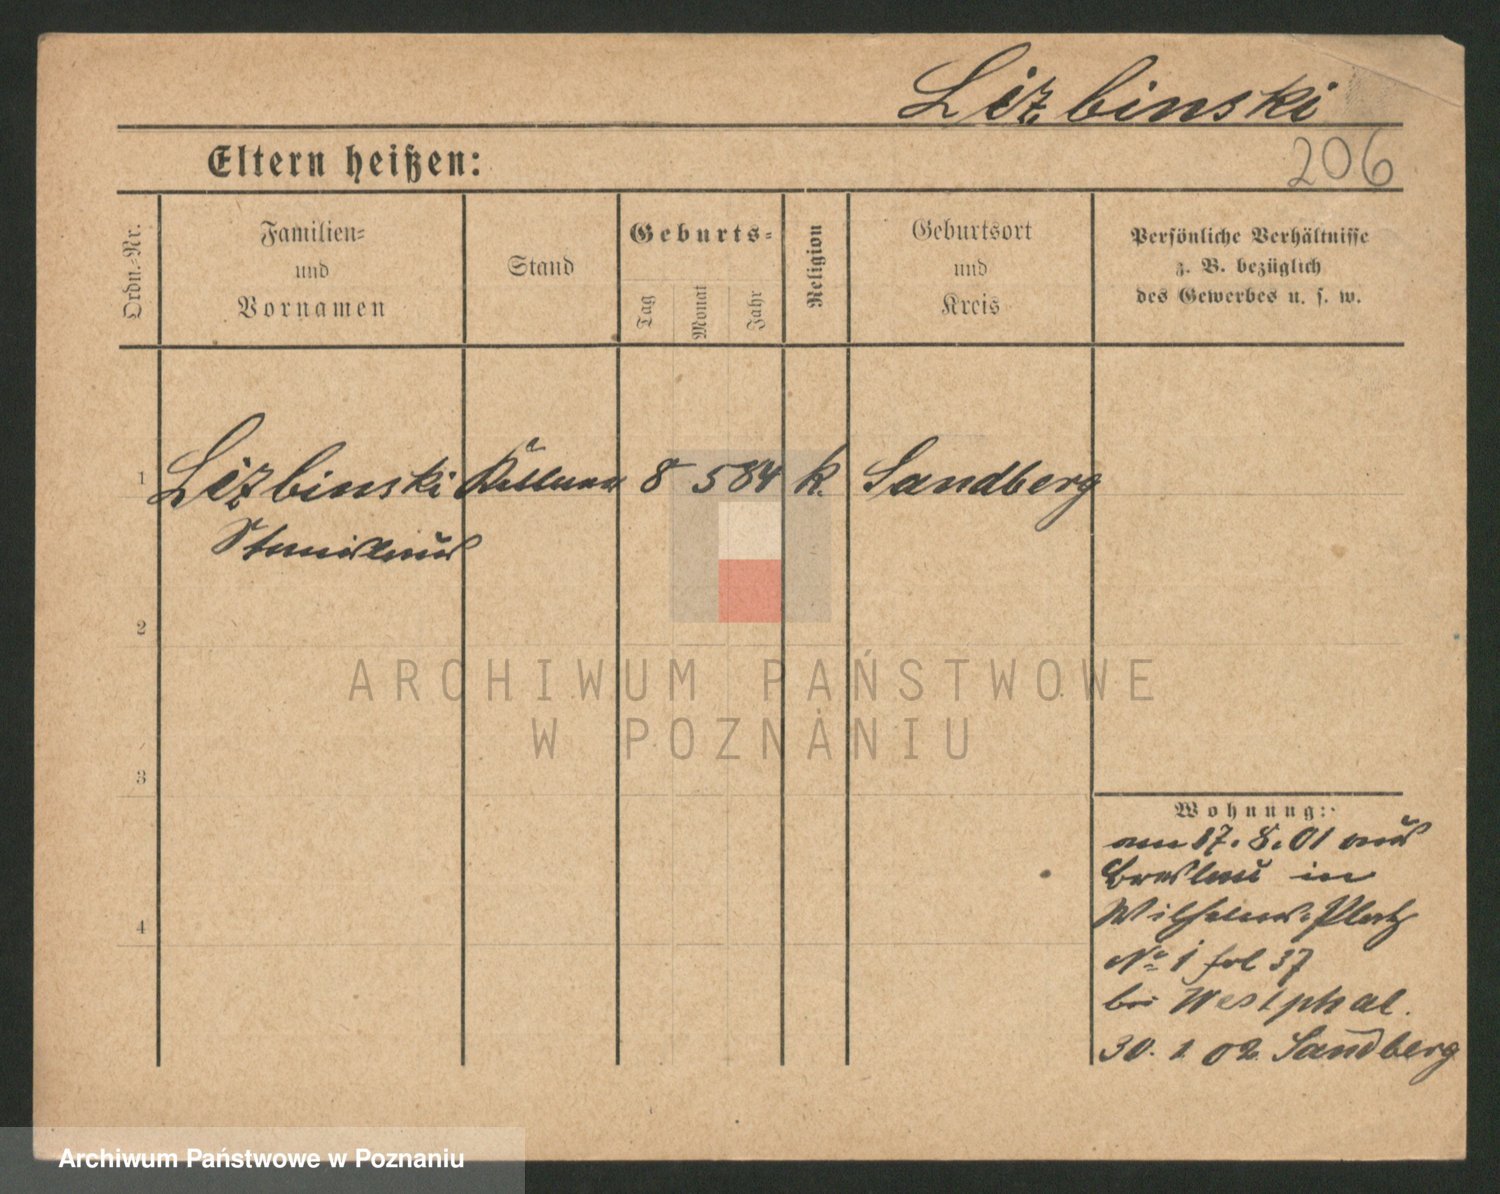 Lizbinski
206
Eltern heißen:
Ordn.-Nr.
Familien-
und
Vornamen
Stand
Geburts-
Tag
Monat
Jahr
Religion
Geburtsort
und
Kreis
Persönliche Verhältnisse
z. B. bezüglich
des Gewerbes u. s. w.
1 Lizbinski Kellner 8 5 84 k. Sandberg
Stanislaus
2
ARCHIWUM PAŃSTWOWE
W POZNANIU
3
Wohnung:
am 17. 8. 01 aus
Breslau in
Wilhelms-Platz
No 1 fol 37
bei Westphal.
4
30. 1 02 Sandberg
Archiwum Państwowe w Poznaniu